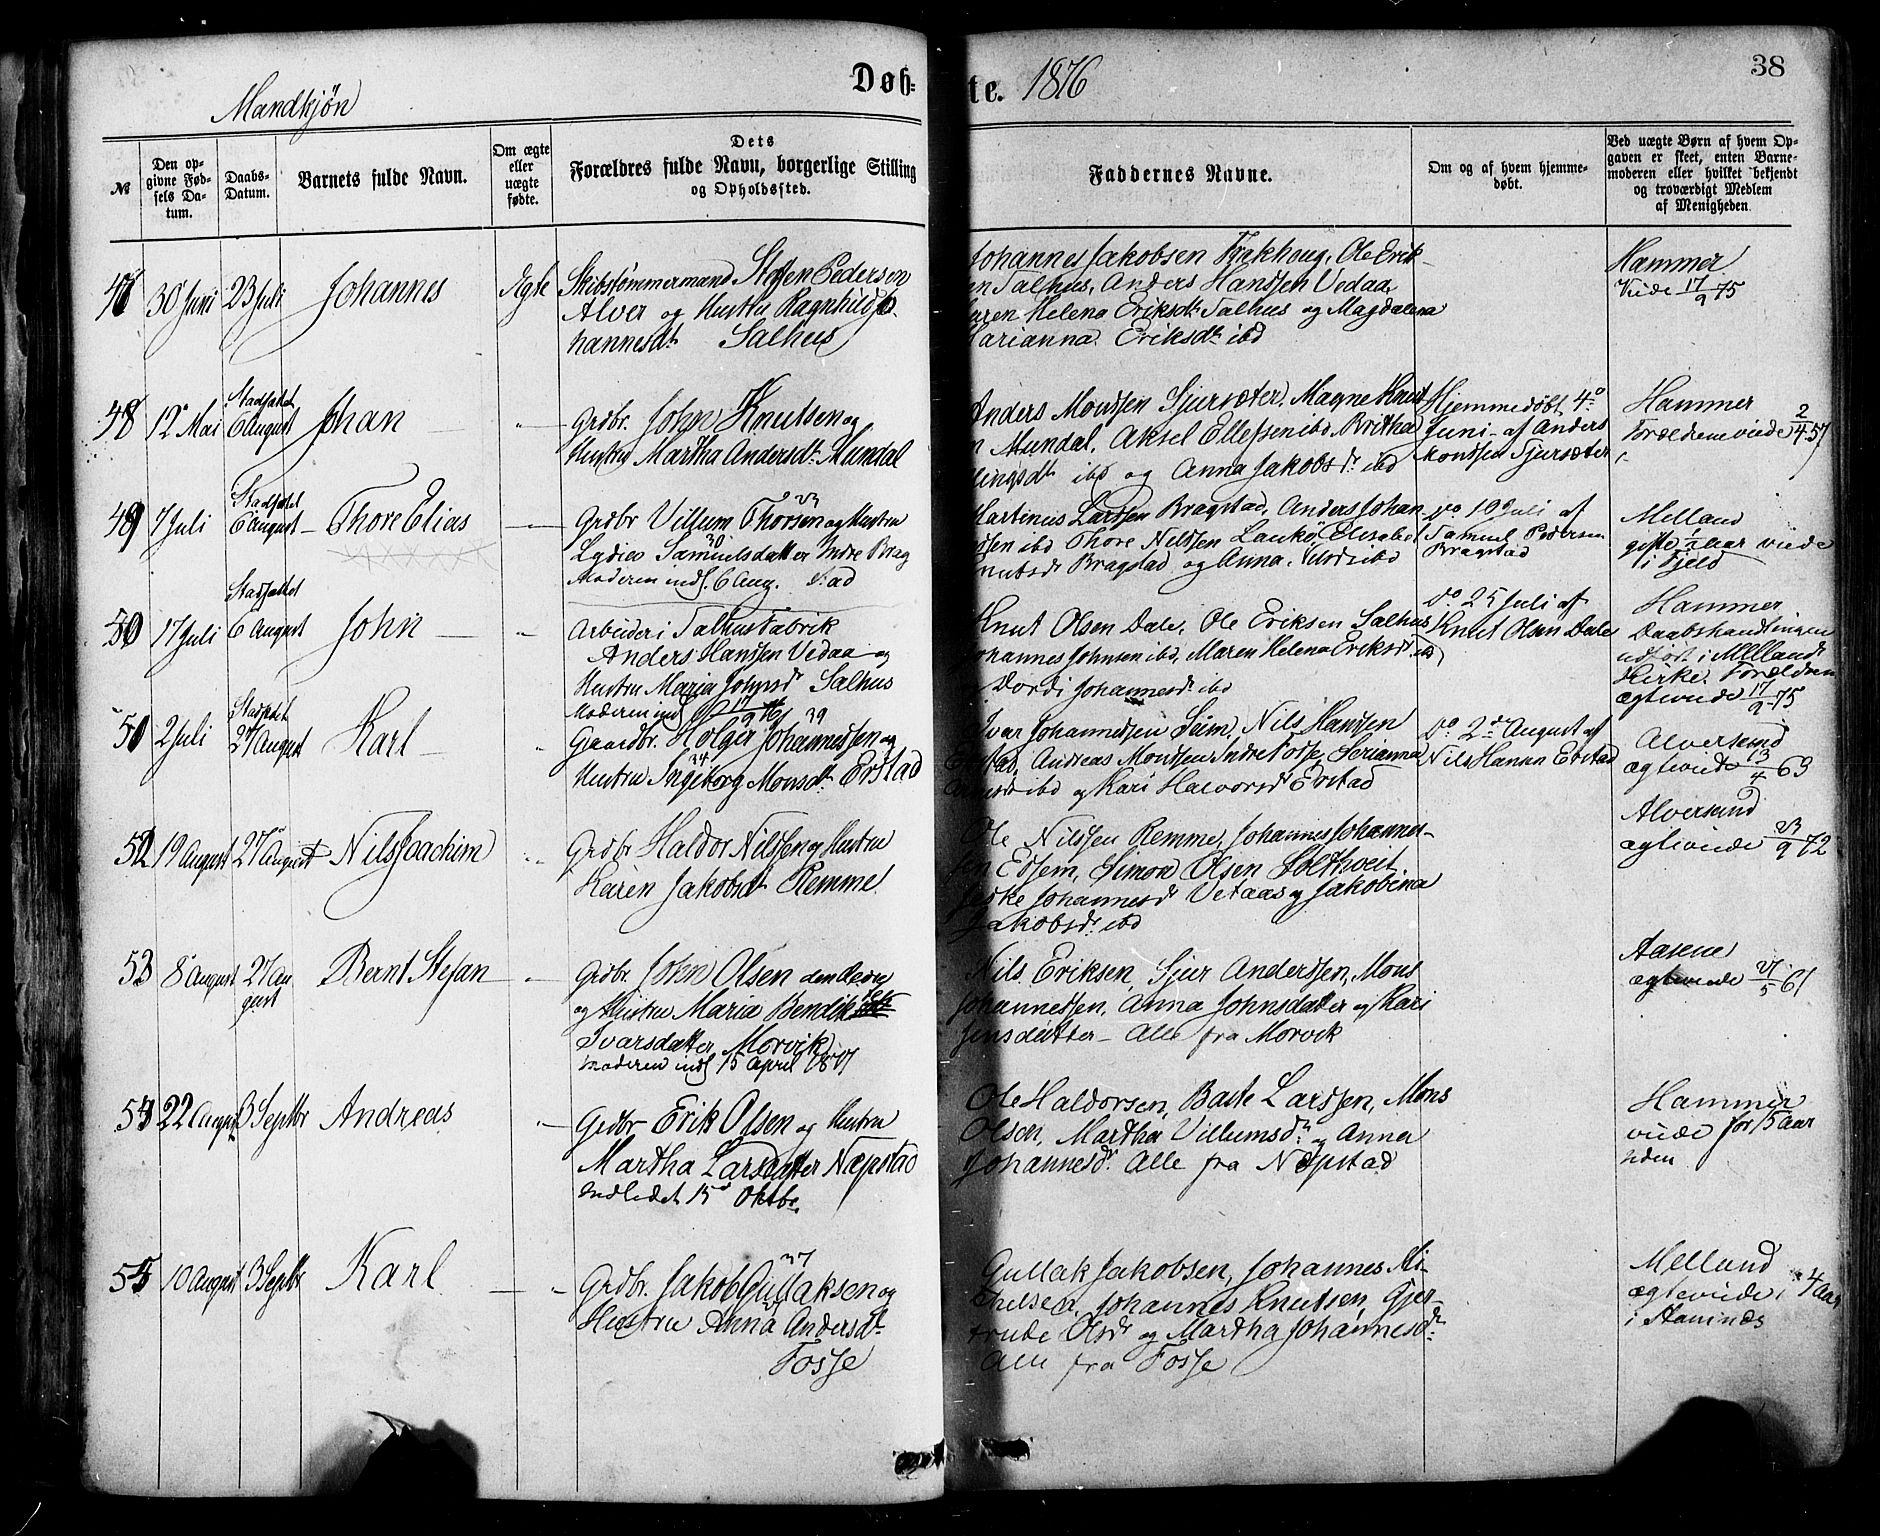 38
Mandkjøn
Døbte. 1876
№
Den opgivne Fødsels Datum.
Daabs-Datum.
Barnets fulde Navn.
Om ægte eller uægte fødte.
Dets Forældres fulde Navn, borgerlige Stilling og Opholdssted.
Faddernes Navne.
Om og af hvem hjemmedøbt.
Ved uægte Børn af hvem Opgaven er skeet, enten Barnemoderen eller hvilket bekjendt og troværdigt Medlem af Menigheden.
47 30 Juni 23 Juli Johannes Ægte
Skibstømmermand Steffen Pedersen
Alver og Hustru Ragnhild Jo-
hannesdt Salhus
Johannes Jakobsen Ole Erik-
en Salhus, Anders Hanssen Vedaa
Karen Helena Eriksdt Salhus og Magdalena
Marianna Eriksdt ibd
Hammer
Viede 17/9 75
48 12 Mai Stadfæstet 6 August Johan
Grdbr. John Knutsen og
Hustru Martha Andersdt. Mundal
Anders Monssen Sjursæter, Magne Knut
n Mundal, Aksel Ellefsen ibd, Britha
lingsdt ibd og Anna Jakobsdt ibd
Hjemmedøbt 4.
Juni af Anders
Monssen Sjursæter
Hammer
Forældrene viede 2/4 57
49 7 Juli Stadfæstet 6 August Thore Elias
Grdbr Villum Thorsen og Hustru
Lydia Samuelsdatter Indre Brag
Moderen indl. 6 Aug. stad
Martinus Larssen Bragstad, Anders Johan
sen ibd Thore Nilssen Elisabet
nutsdt Bragstad og Anna ibd
do 10 Juli af
Samuel Pedersen
Bragstad
Melland
gifte 1/2 aar viede
i Fjeld
50 17 Juli Stadfæstet 6 August John
Arbeider i Salhus Fabrik
Anders Hanssen Vedaa og
Hustru Maria Johnsdt Salhus
Moderen indl 17/9 76
Knut Olsen Dale, Ole Eriksen Salhus
Johannes Johnsen ibd, Maren Helena Eriksdt ibd
Dordi Johannesdt ibd
do 25 Juli af
Knut Olsen Dale
Hammer
Daabshandlingen
udført i Mellands
Kirke. Forældrene
ægteviede 17/9 75
51 2 Juli Stadfæstet 27 August Karl
Gaardbr. Holger Johannessen og 39
Hustru Ingeborg Monsdt. Erstad 34
Ivar Johannessen Seim, Nils Hanssen
Erstad, Andreas Monssen Indre Fosse, Serianna
ibd og Kari Halvorsdt Erstad
do 2 August af
Nils Hansen Erstad
Alversund
ægteviede 13/4 63
52 19 August 27 August Nils Joachim
Grdbr Haldor Nilssen og Hustru
Karen Jakobsdt Remme
Ole Nilssen Remme, Johannes Johannes-
sen Edsem, Simon Olsen Soltveit
Johannesdt Vetaas og Jakobina
Jakobsdt. ibd
Alversund
ægteviede 23/9 72
53 8 August 27 August Bernt Stefan
Grdbr. John Olsen den Ældre
og Hustru Maria Bendikte
Ivarsdatter Morvik
Moderen indl 15 April 1877
Nils Eriksen, Sjur Anderssen, Mons
Johannessen, Anna Johnsdatter og Kari
Jensdatter – Alle fra Morvik
Aasene
ægteviede 21/5 61
54 22 August 3 Septbr Andreas
Grdbr Erik Olsen og Hustru
Martha Larsdatter Nepstad
Indledet 15 Oktbr.
Ole Haldorsen, Baste Larssen, Mons
Olsen, Martha Villumsdt. og Anna
Johannesdt. Alle fra Nepstad
Hammer
viede for 15 aar
siden
55 10 August 3 Septbr Karl
Grdbr. Jakob Gullaksen og 37
Hustru Anna Andersdt.
Fosse
Gullak Jakobsen, Johannes Mi-
chelsen, Johannes Knutsen, Gjer-
trude Olsdt og Martha Johannesdt.
Alle fra Fosse
Melland
ægteviede 4 aar
i Hammer